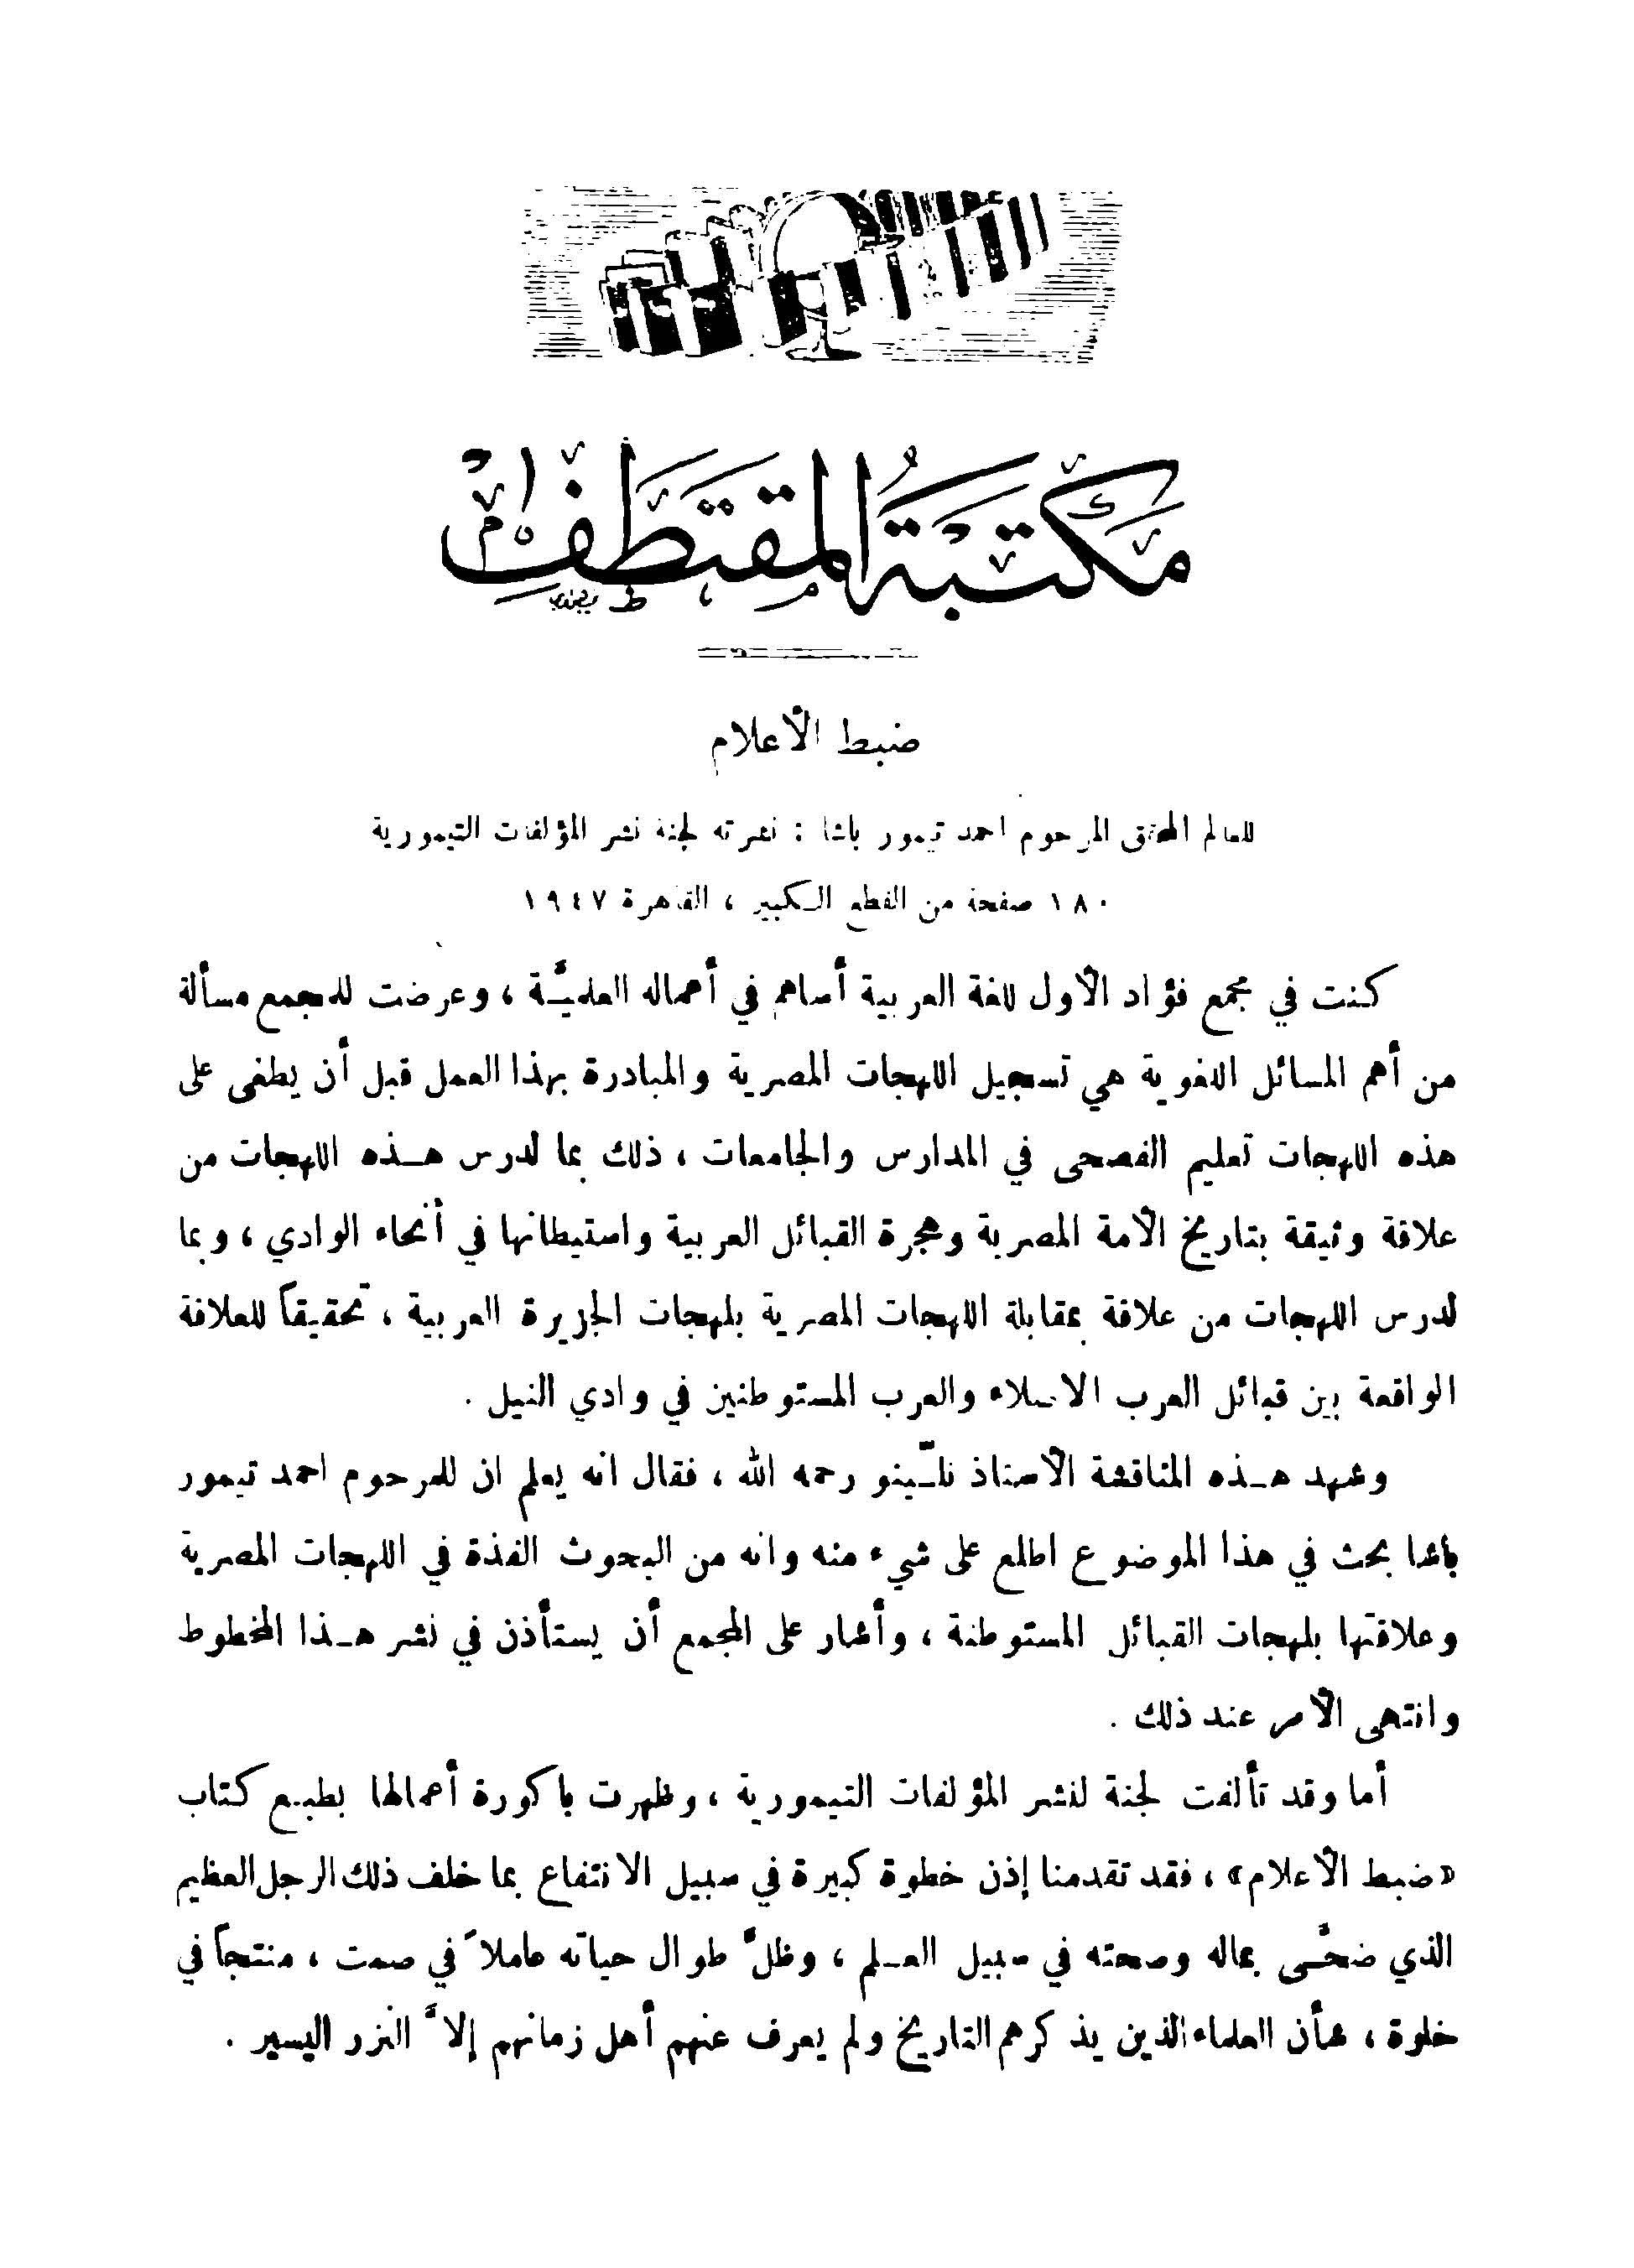 مكتبة المقتطف
ضبط الأعلام
للعالم المحقق المرحوم احمد تيمور باشا : نشرته لجنة نشر المؤلفات التيمورية
١٨٠ صفحة من القطع الكبير ، القاهرة ١٩٤٧
كنت في مجمع فؤاد الأول للغة العربية أساهم في أعماله العلميَّة ، وعرضت للمجمع مسألة
من أهم المسائل اللغوية هي تسجيل اللهجات المصرية والمبادرة بهذا العمل قبل أن يطغى على
هذه اللهجات تعليم الفصحى في المدارس والجامعات ، ذلك بما لدرس هـذه اللهجات من
علاقة وثيقة بتاريخ الأمة المصرية وهجرة القبائل العربية واستيطانها في أنحاء الوادي ، وبما
لدرس اللهجات من علاقة بمقابلة اللهجات المصرية بلهجات الجزيرة العربية ، تحقيقاً للعلاقة
الواقعة بين قبائل العرب الاصلاء والعرب المستوطنين في وادي النيل .
وشهد هـذه المناقشة الأستاذ نلّينو رحمه الله ، فقال انه يعلم ان للمرحوم احمد تيمور
باشا بحث في هذا الموضوع اطلع على شيء منه وانه من البحوث الفذة في اللهجات المصرية
وعلاقتها بلهجات القبائل المستوطنة ، وأشار على المجمع أن يستأذن في نشر هـذا المخطوط
وانتهى الأمر عند ذلك .
أما وقد تألفت لجنة لنشر المؤلفات التيمورية ، وظهرت باكورة أعمالها بطبع كتاب
«ضبط الأعلام» ، فقد تقدمنا إذن خطوة كبيرة في سبيل الانتفاع بما خلف ذلك الرجل العظيم
الذي ضحَّى بماله وصحته في سبيل العـلم ، وظلَّ طوال حياته عاملاً في صمت ، منتجاً في
خلوة ، شأن العلماء الذين يذكرهم التاريخ ولم يعرف عنهم أهل زمانهم إلاَّ النزر اليسير .